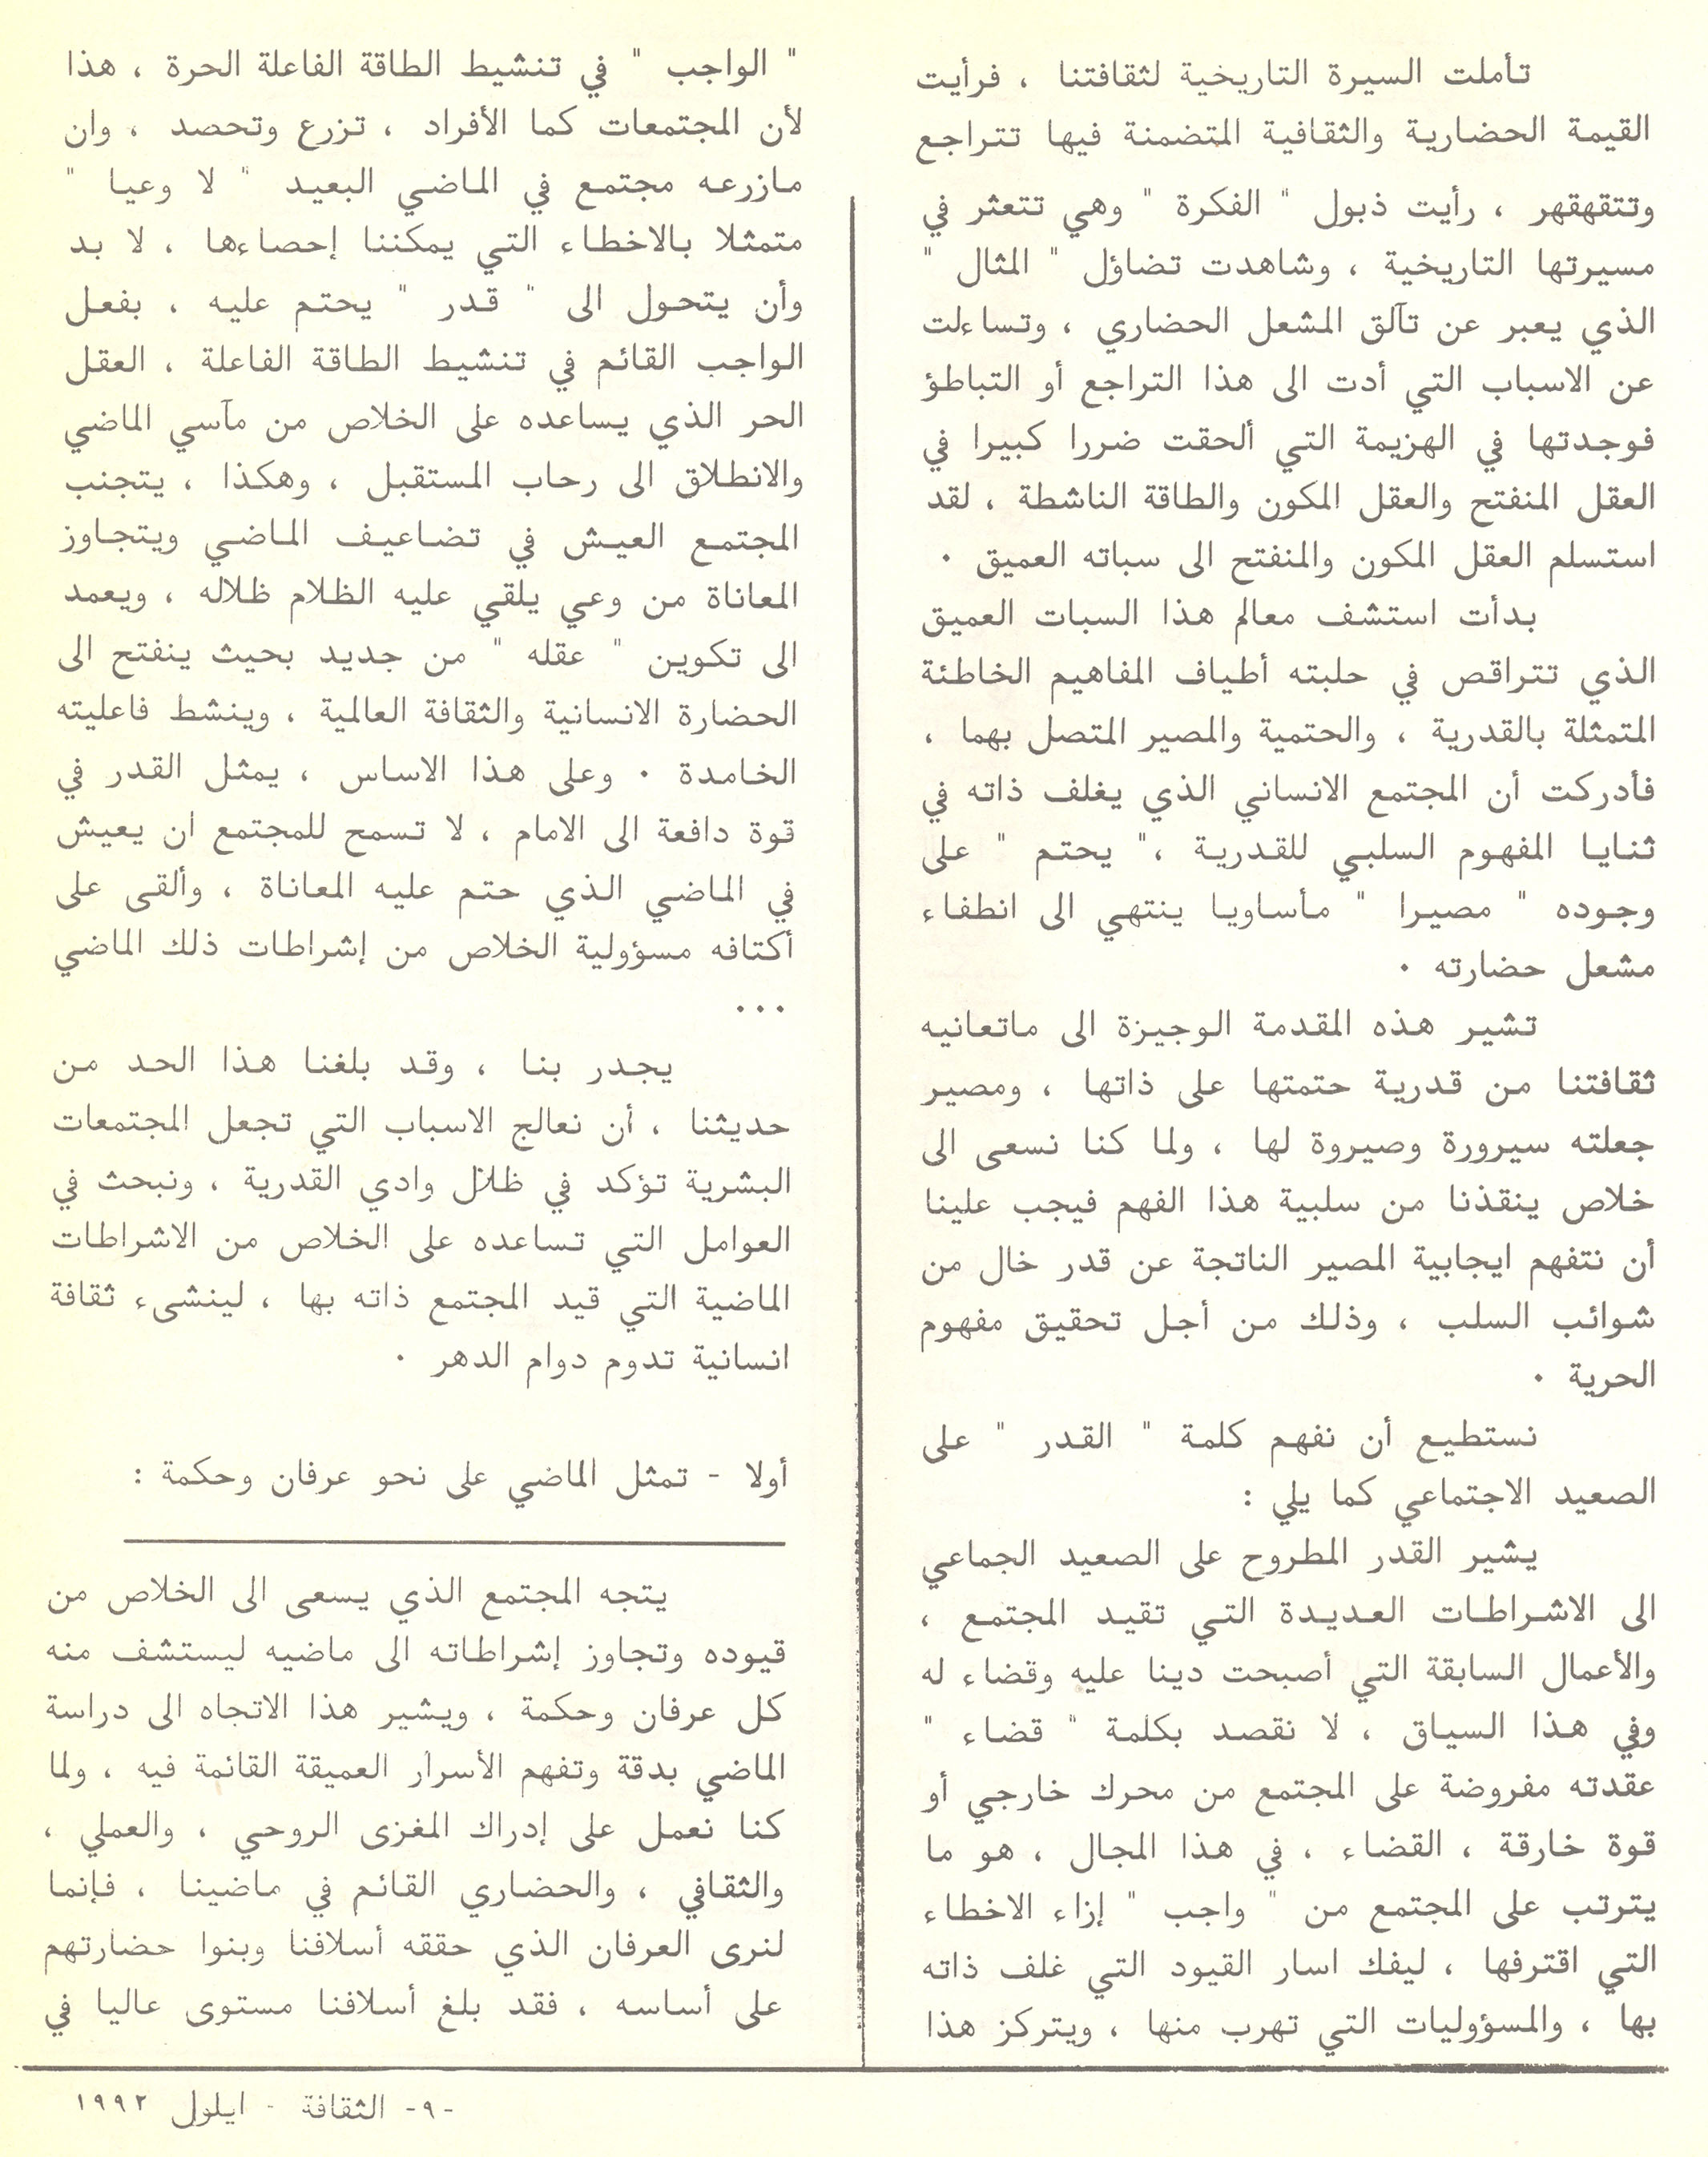 تأملت السيرة التاريخية لثقافتنا ، فرأيت
القيمة الحضارية والثقافية المتضمنة فيها تتراجع
وتتقهقهر ، رأيت ذبول " الفكرة " وهي تتعثر في
مسيرتها التاريخية ، وشاهدت تضاؤل " المثال "
الذي يعبر عن تآلق المشعل الحضاري ، وتساءلت
عن الاسباب التي أدت الى هذا التراجع أو التباطؤ
فوجدتها في الهزيمة التي ألحقت ضررا كبيرا في
العقل المنفتح والعقل المكون والطاقة الناشطة ، لقد
استسلم العقل المكون والمنفتح الى سباته العميق ٠
بدأت استشف معالم هذا السبات العميق
الذي تتراقص في حلبته أطياف المفاهيم الخاطئة
المتمثلة بالقدرية ، والحتمية والمصير المتصل بهما ،
فأدركت أن المجتمع الانساني الذي يغلف ذاته في
ثنايا المفهوم السلبي للقدرية ،" يحتم " على
وجوده " مصيرا " مأساويا ينتهي الى انطفاء
مشعل حضارته ٠
تشير هذه المقدمة الوجيزة الى ماتعانيه
ثقافتنا من قدرية حتمتها على ذاتها ، ومصير
جعلته سيرورة وصيروة لها ، ولما كنا نسعى الى
خلاص ينقذنا من سلبية هذا الفهم فيجب علينا
أن نتفهم ايجابية المصير الناتجة عن قدر خال من
شوائب السلب ، وذلك من أجل تحقيق مفهوم
الحرية ٠
نستطيع أن نفهم كلمة " القدر " على
الصعيد الاجتماعي كما يلي :
يشير القدر المطروح على الصعيد الجماعي
الى الاشراطات العديدة التي تقيد المجتمع ،
والأعمال السابقة التي أصبحت دينا عليه وقضاء له
وفي هذا السياق ، لا نقصد بكلمة " قضاء "
عقدته مفروضة على المجتمع من محرك خارجي أو
قوة خارقة ، القضاء ، في هذا المجال ، هو ما
يترتب على المجتمع من " واجب " إزاء الاخطاء
التي اقترفها ، ليفك اسار القيود التي غلف ذاته
بها ، والمسؤوليات التي تهرب منها ، ويتركز هذا
" الواجب " في تنشيط الطاقة الفاعلة الحرة ، هذا
لأن المجتمعات كما الأفراد ، تزرع وتحصد ، وان
مازرعه مجتمع في الماضي البعيد " لا وعيا "
متمثلا بالاخطاء التي يمكننا إحصاءها ، لا بد
وأن يتحول الى " قدر " يحتم عليه ، بفعل
الواجب القائم في تنشيط الطاقة الفاعلة ، العقل
الحر الذي يساعده على الخلاص من مآسي الماضي
والانطلاق الى رحاب المستقبل ، وهكذا ، يتجنب
المجتمع العيش في تضاعيف الماضي ويتجاوز
المعاناة من وعي يلقي عليه الظلام ظلاله ، ويعمد
الى تكوين " عقله " من جديد بحيث ينفتح الى
الحضارة الانسانية والثقافة العالمية ، وينشط فاعليته
الخامدة ٠ وعلى هذا الاساس ، يمثل القدر في
قوة دافعة الى الامام ، لا تسمح للمجتمع ان يعيش
في الماضي الذي حتم عليه المعاناة ، وألقى على
أكتافه مسؤولية الخلاص من إشراطات ذلك الماضي
٠٠٠
يجدر بنا ، وقد بلغنا هذا الحد من
حديثنا ، أن نعالج الاسباب التي تجعل المجتمعات
البشرية تؤكد في ظلال وادي القدرية ، ونبحث في
العوامل التي تساعده على الخلاص من الاشراطات
الماضية التي قيد المجتمع ذاته بها ، لينشىء ثقافة
انسانية تدوم دوام الدهر ٠
أولا - تمثل الماضي على نحو عرفان وحكمة :
يتجه المجتمع الذي يسعى الى الخلاص من
قيوده وتجاوز إشراطاته الى ماضيه ليستشف منه
كل عرفان وحكمة ، ويشير هذا الاتجاه الى دراسة
الماضي بدقة وتفهم الأسرار العميقة القائمة فيه ، ولما
كنا نعمل على إدراك المغزى الروحي ، والعملي ،
والثقافي ، والحضاري القائم في ماضينا ، فإنما
لنرى العرفان الذي حققه أسلافنا وبنوا حضارتهم
على أساسه ، فقد بلغ أسلافنا مستوى عاليا في
-٩- الثقافة - ايلول ١٩٩٢